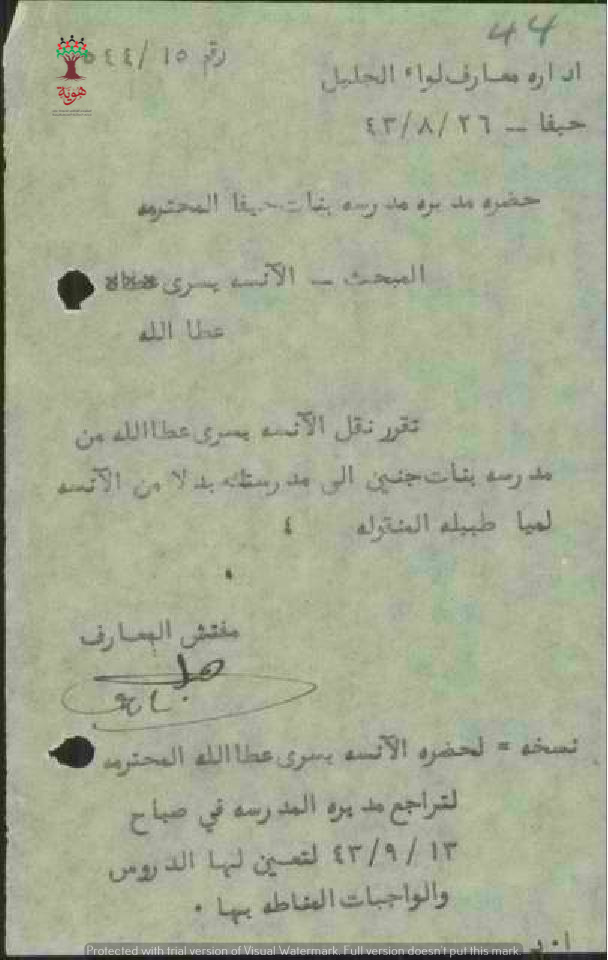 44
رقم ١٥ /٥٤٤
اداره معارف لواء الجليل
حيفا — ٤٣/٨/٢٦
حضره مديره مدرسه بنات حيفا المحترمه
المبحث — الآنسه يسرى
عطا الله
تقرر نقل الآنسه يسرى عطاالله من
مدرسه بنات جنين الى مدرستك بدلا من الآنسه
لميا طبيله المنقوله ٤
مفتش المعارف
نسخه = لحضره الآنسه يسرى عطاالله المحترمه
لتراجع مديره المدرسه في صباح
٤٣/٩/١٣ لتعيين لها الدروس
والواجبات المناطه بها .
هوية
Protected with trial version of Visual Watermark. Full version doesn't put this mark.